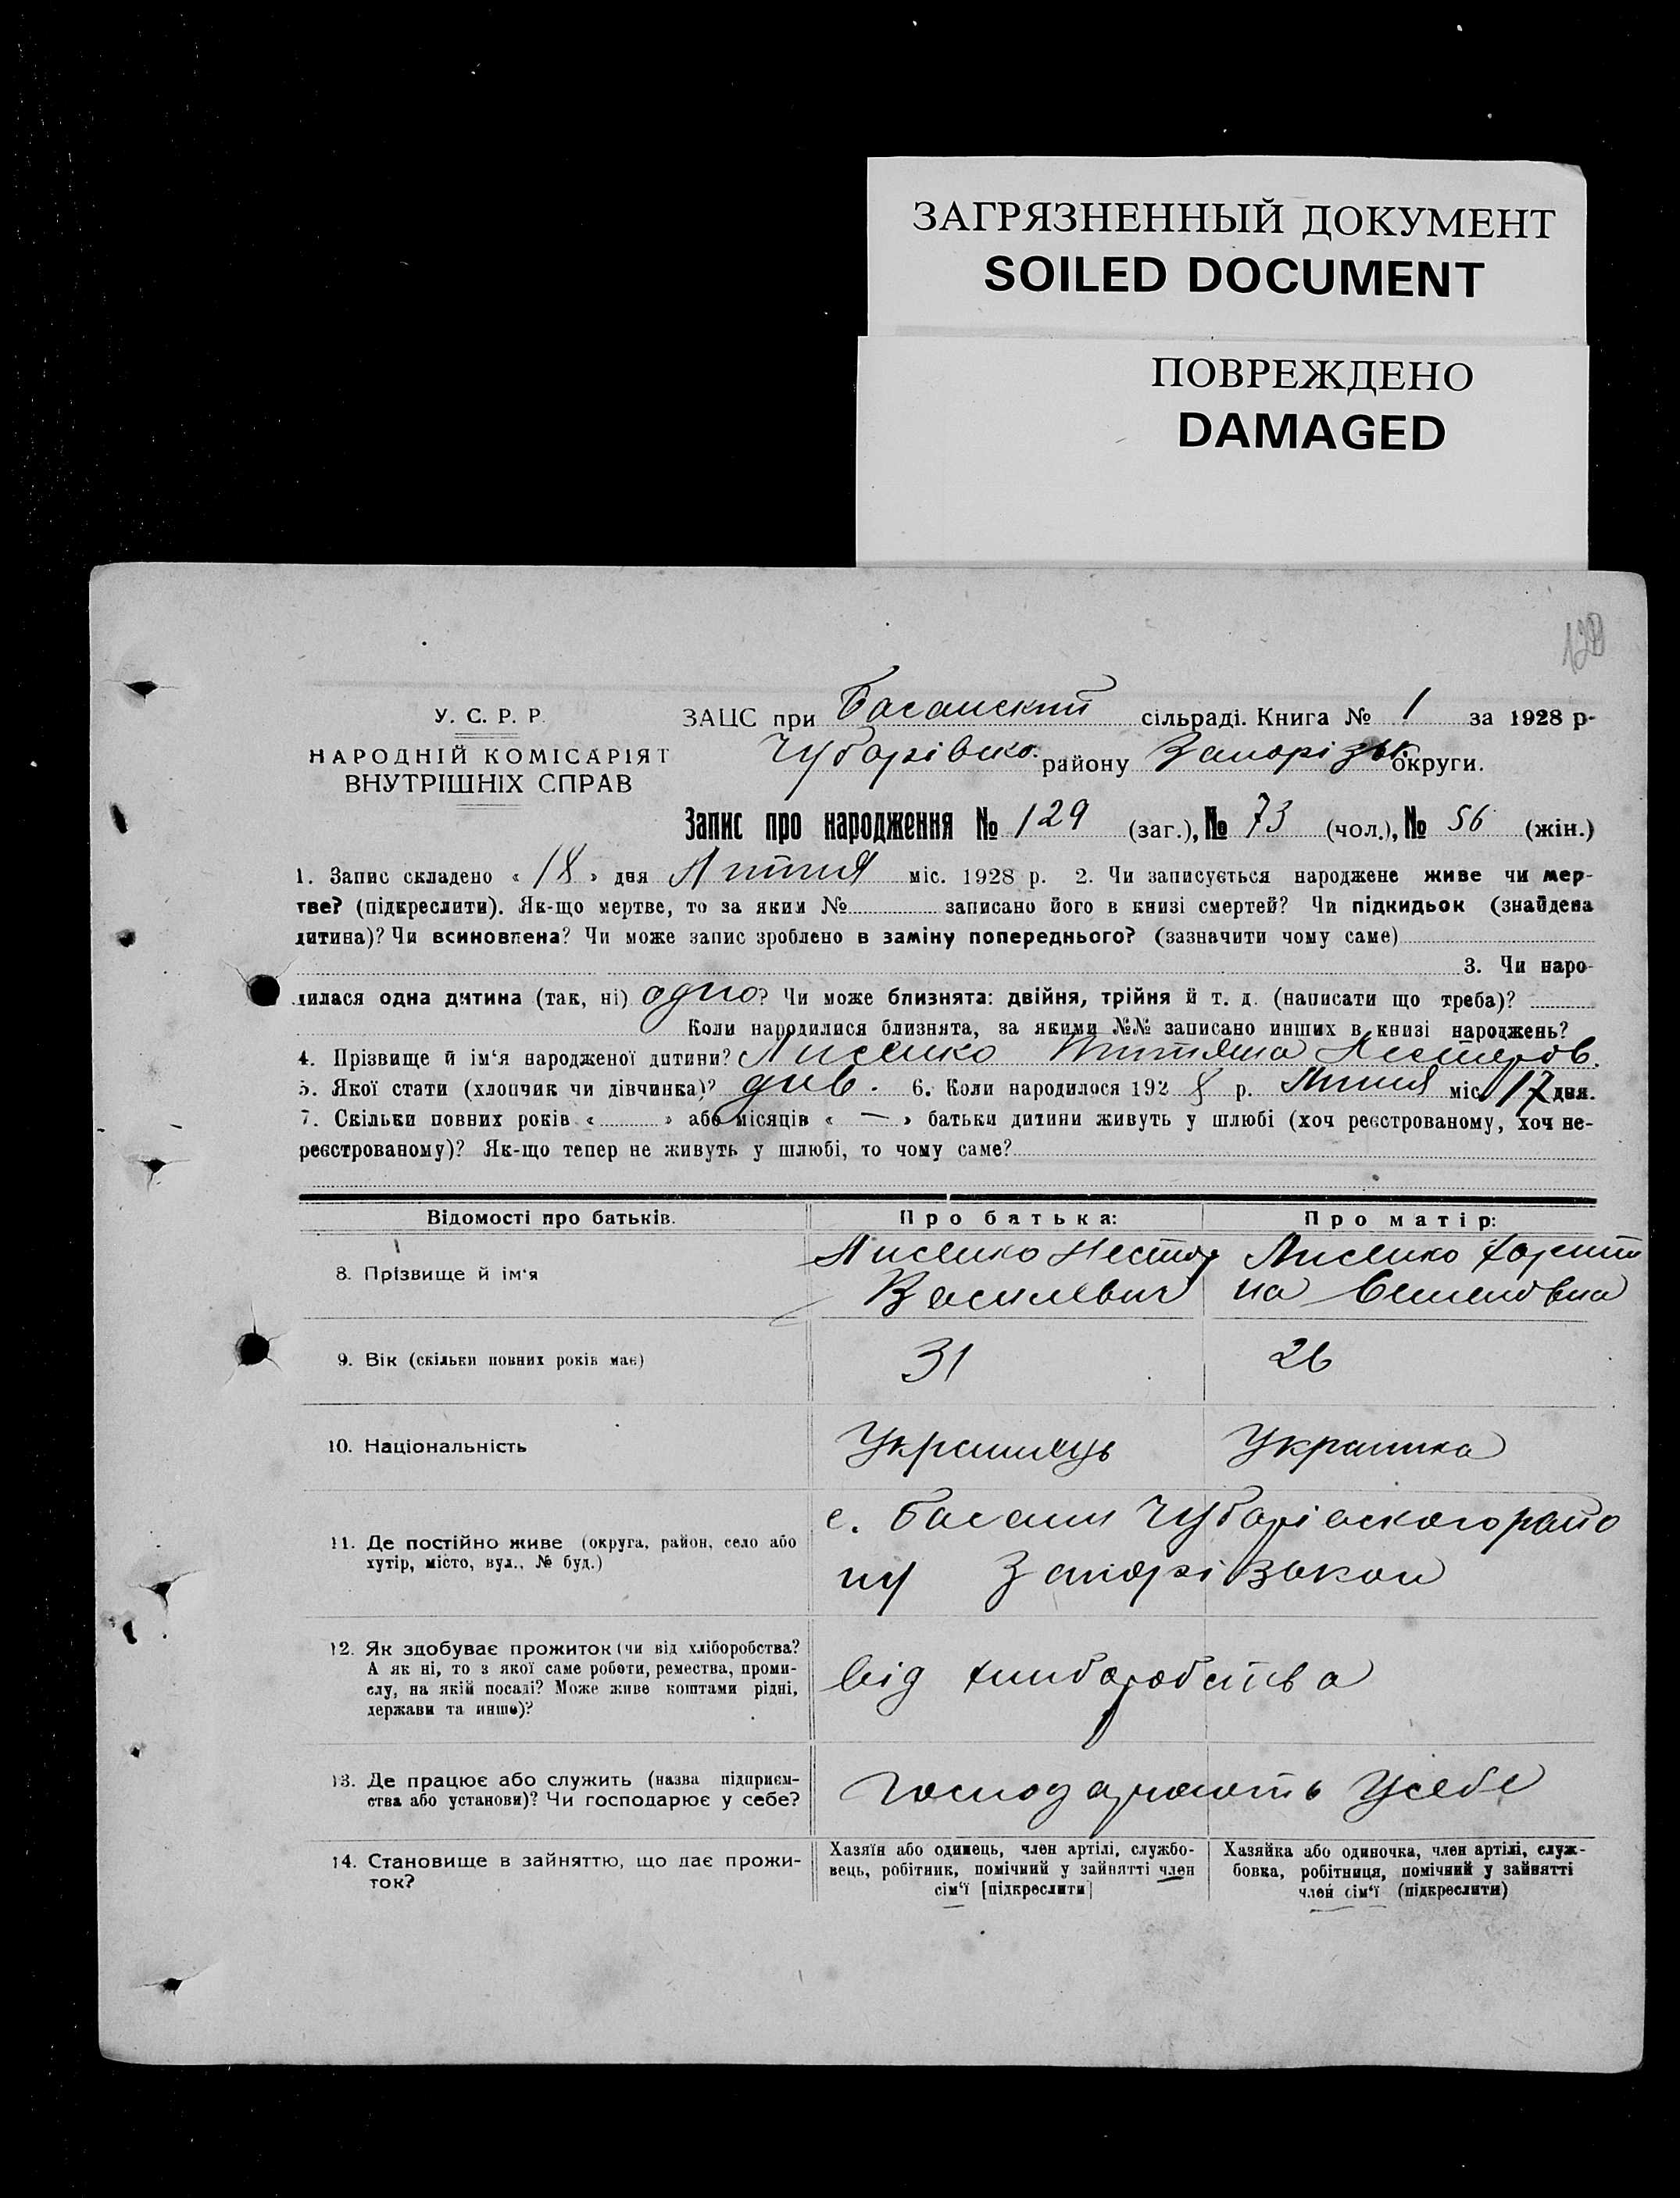 ЗАГРЯЗНЕННЫЙ ДОКУМЕНТ
SOILED DOCUMENT
ПОВРЕЖДЕНО
DAMAGED
У. С. Р. Р.
НАРОДНІЙ КОМІСАРІЯТ
ВНУТРІШНІХ СПРАВ
ЗАЦС при Басанский сільраді. Книга № 1 за 1928 р-
Чубарівско. району Запорізьк. округи.
Запис про народження № 129 (заг.), № 73 (чол.), № 56 (жін.)
1. Запис складено « 18 » дня Липня міс. 1928 р. 2. Чи записується народжене живе чи мер-
тве? (підкреслити). Як-що мертве, то за яким № записано його в книзі смертей? Чи підкидьок (знайдена
дитина)? Чи всиновлена? Чи може запис зроблено в заміну попереднього? (зазначити чому саме)
3. Чи наро-
дилася одна дитина (так, ні) одно? Чи може близнята: двійня, трійня й т. д. (написати що треба)?
Коли народилися близнята, за якими №№ записано инших в книзі народжень?
4. Прізвище й ім‘я народженої дитини? Лисенко Титяна Нестеров.
5. Якої стати (хлопчик чи дівчинка)? дів. 6. Коли народилося 1928 р. Липня міс. 17 дня.
7. Скільки повних років « » або місяців « — » батьки дитини живуть у шлюбі (хоч реєстрованому, хоч не-
реєстрованому)? Як-що тепер не живуть у шлюбі, то чому саме?
Відомості про батьків. Про батька: Про матір:
8. Прізвище й ім‘я
Лисенко Нестор
Василевич
Лисенко Харити
на Семеновна
9. Вік (скільки повних років має) 31 26
10. Національність Українець Українка
11. Де постійно живе (округа, район, село або
хутір, місто, вул., № буд.)
с. Басани Чубарівского райо
ну Запорізькои
12. Як здобуває прожиток (чи від хліборобства?
А як ні, то з якої саме роботи, ремества, проми-
слу, на якій посаді? Може живе коштами рідні,
держави та инше)?
від хлиборобства
13. Де працює або служить (назва підприєм-
ства або установи)? Чи господарює у себе?
Господарюють Усебе
14. Становище в зайняттю, що дає прожи-
ток?
Хазяїн або одинець, член артілі, службо-
вець, робітник, помічний у зайнятті член
сім‘ї [підкреслити]
Хазяйка або одиночка, член артілі, служ-
бовка, робітниця, помічний у зайнятті
член сім‘ї (підкреслити)